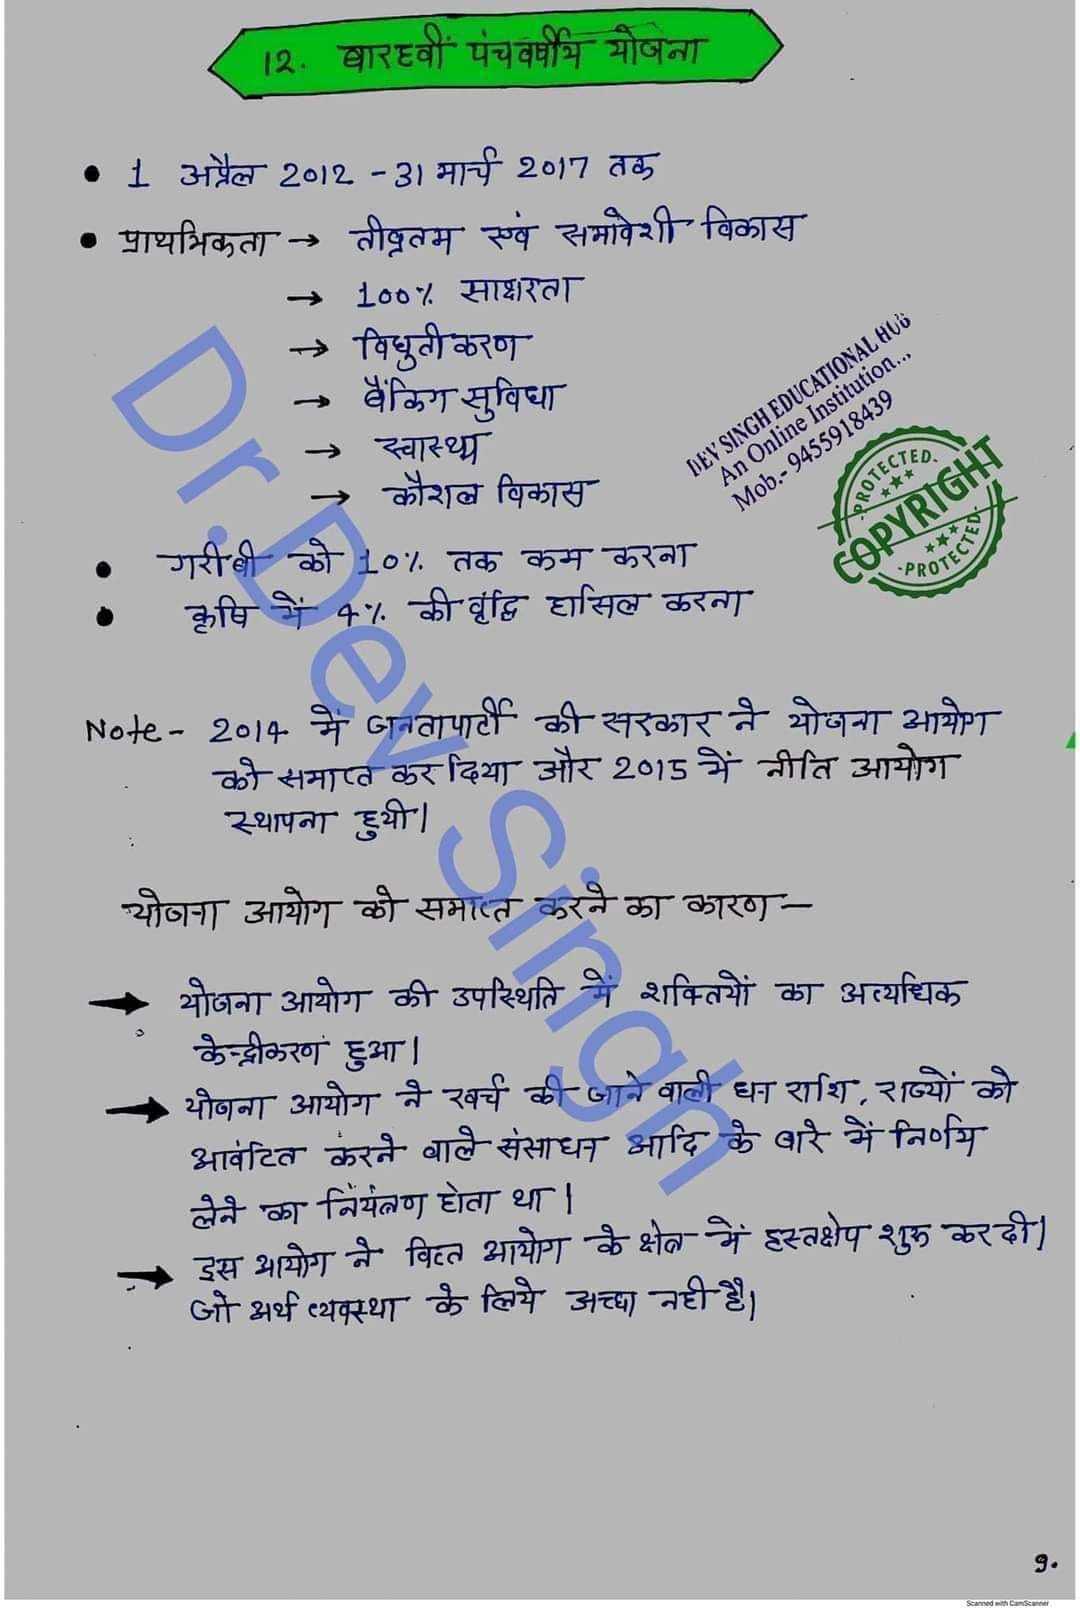 12. बारहवीं पंचवर्षीय योजना
• 1 अप्रैल 2012 - 31 मार्च 2017 तक
• प्राथमिकता → तीव्रतम एवं समावेशी विकास
→ 100% साक्षरता
→ विधुतीकरण
→ बैंकिग सुविधा
→ स्वास्थ्य
→ कौशल विकास
DEV SINGH EDUCATIONAL HUB
An Online Institution...
Mob.- 9455918439
PROTECTED
COPYRIGHT
PROTECTED
• गरीबी को 10% तक कम करना
• कृषि में 4% की वृद्धि हासिल करना
Dr.Dev Singh
Note - 2014 में जनतापार्टी की सरकार ने योजना आयोग
को समाप्त कर दिया और 2015 में नीति आयोग
स्थापना हुयी।
योजना आयोग को समाप्त करने का कारण —
→ योजना आयोग की उपस्थिति में शक्तियों का अत्यधिक
केन्द्रीकरण हुआ।
→ योजना आयोग ने खर्च की जाने वाली धन राशि, राज्यों को
आवंटित करने वाले संसाधन आदि के बारे में निर्णय
लेने का नियंत्रण होता था।
→ इस आयोग ने वित्त आयोग के क्षेत्र में हस्तक्षेप शुरू कर दी।
जो अर्थ व्यवस्था के लिये अच्छा नही है।
9.
Scanned with CamScanner